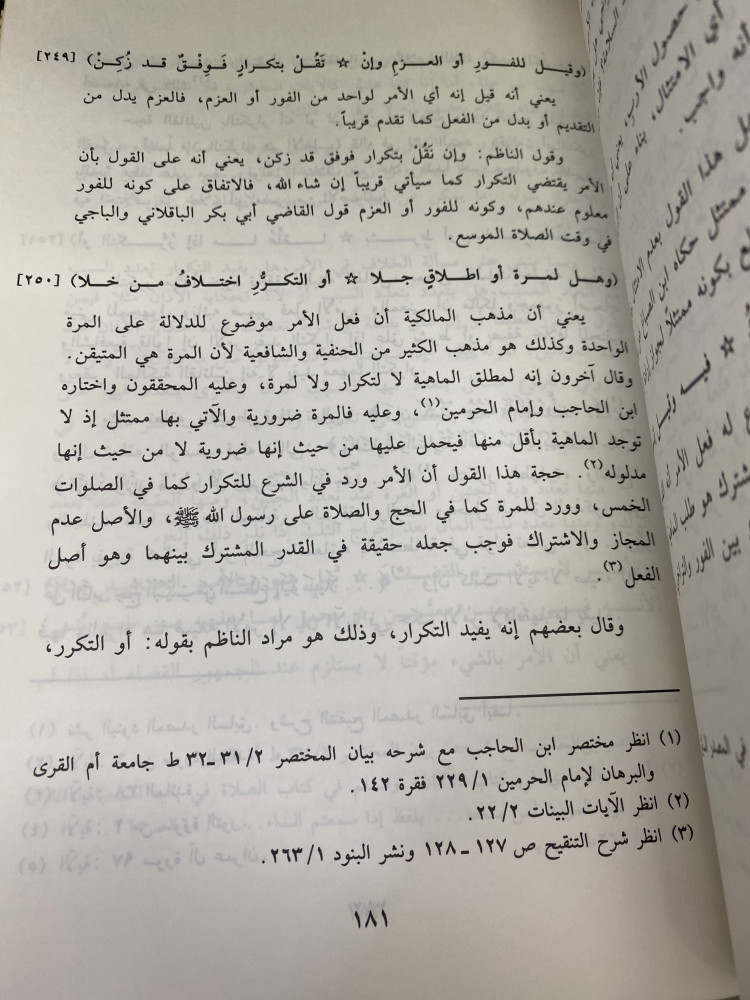 (وقيل للفورِ أو العزمِ وإنْ ☆ تَقُلْ بتكرارٍ فَوِفْقٌ قد زُكِنْ) [٢٤٩]
يعني أنه قيل إنه أي الأمر لواحد من الفور أو العزم، فالعزم يدل من
التقديم أو بدل من الفعل كما تقدم قريباً.
وقول الناظم: وإن نَقُلْ بتكرار فوفق قد زكن، يعني أنه على القول بأن
الأمر يقتضي التكرار كما سيأتي قريباً إن شاء الله، فالاتفاق على كونه للفور
معلوم عندهم، وكونه للفور أو العزم قول القاضي أبي بكر الباقلاني والباجي
في وقت الصلاة الموسع.
(وهل لمرة أو اطلاقٍ جلا ☆ أو التكرُّرِ اختلافُ من خلا) [٢٥٠]
يعني أن مذهب المالكية أن فعل الأمر موضوع للدلالة على المرة
الواحدة وكذلك هو مذهب الكثير من الحنفية والشافعية لأن المرة هي المتيقن.
وقال آخرون إنه لمطلق الماهية لا لتكرار ولا لمرة، وعليه المحققون واختاره
ابن الحاجب وإمام الحرمين(١)، وعليه فالمرة ضرورية والآتي بها ممتثل إذ لا
توجد الماهية بأقل منها فيحمل عليها من حيث إنها ضروية لا من حيث إنها
مدلوله(٢). حجة هذا القول أن الأمر ورد في الشرع للتكرار كما في الصلوات
الخمس، وورد للمرة كما في الحج والصلاة على رسول الله ﷺ، والأصل عدم
المجاز والاشتراك فوجب جعله حقيقة في القدر المشترك بينهما وهو أصل
الفعل(٣).
وقال بعضهم إنه يفيد التكرار، وذلك هو مراد الناظم بقوله: أو التكرر،
(١) انظر مختصر ابن الحاجب مع شرحه بيان المختصر ٣١/٢ـ٣٢ ط جامعة أم القرى
والبرهان لإمام الحرمين ٢٢٩/١ فقرة ١٤٢.
(٢) انظر الآيات البينات ٢٢/٢.
(٣) انظر شرح التنقيح ص ١٢٧ ـ ١٢٨ ونشر البنود ٢٦٣/١.
١٨١